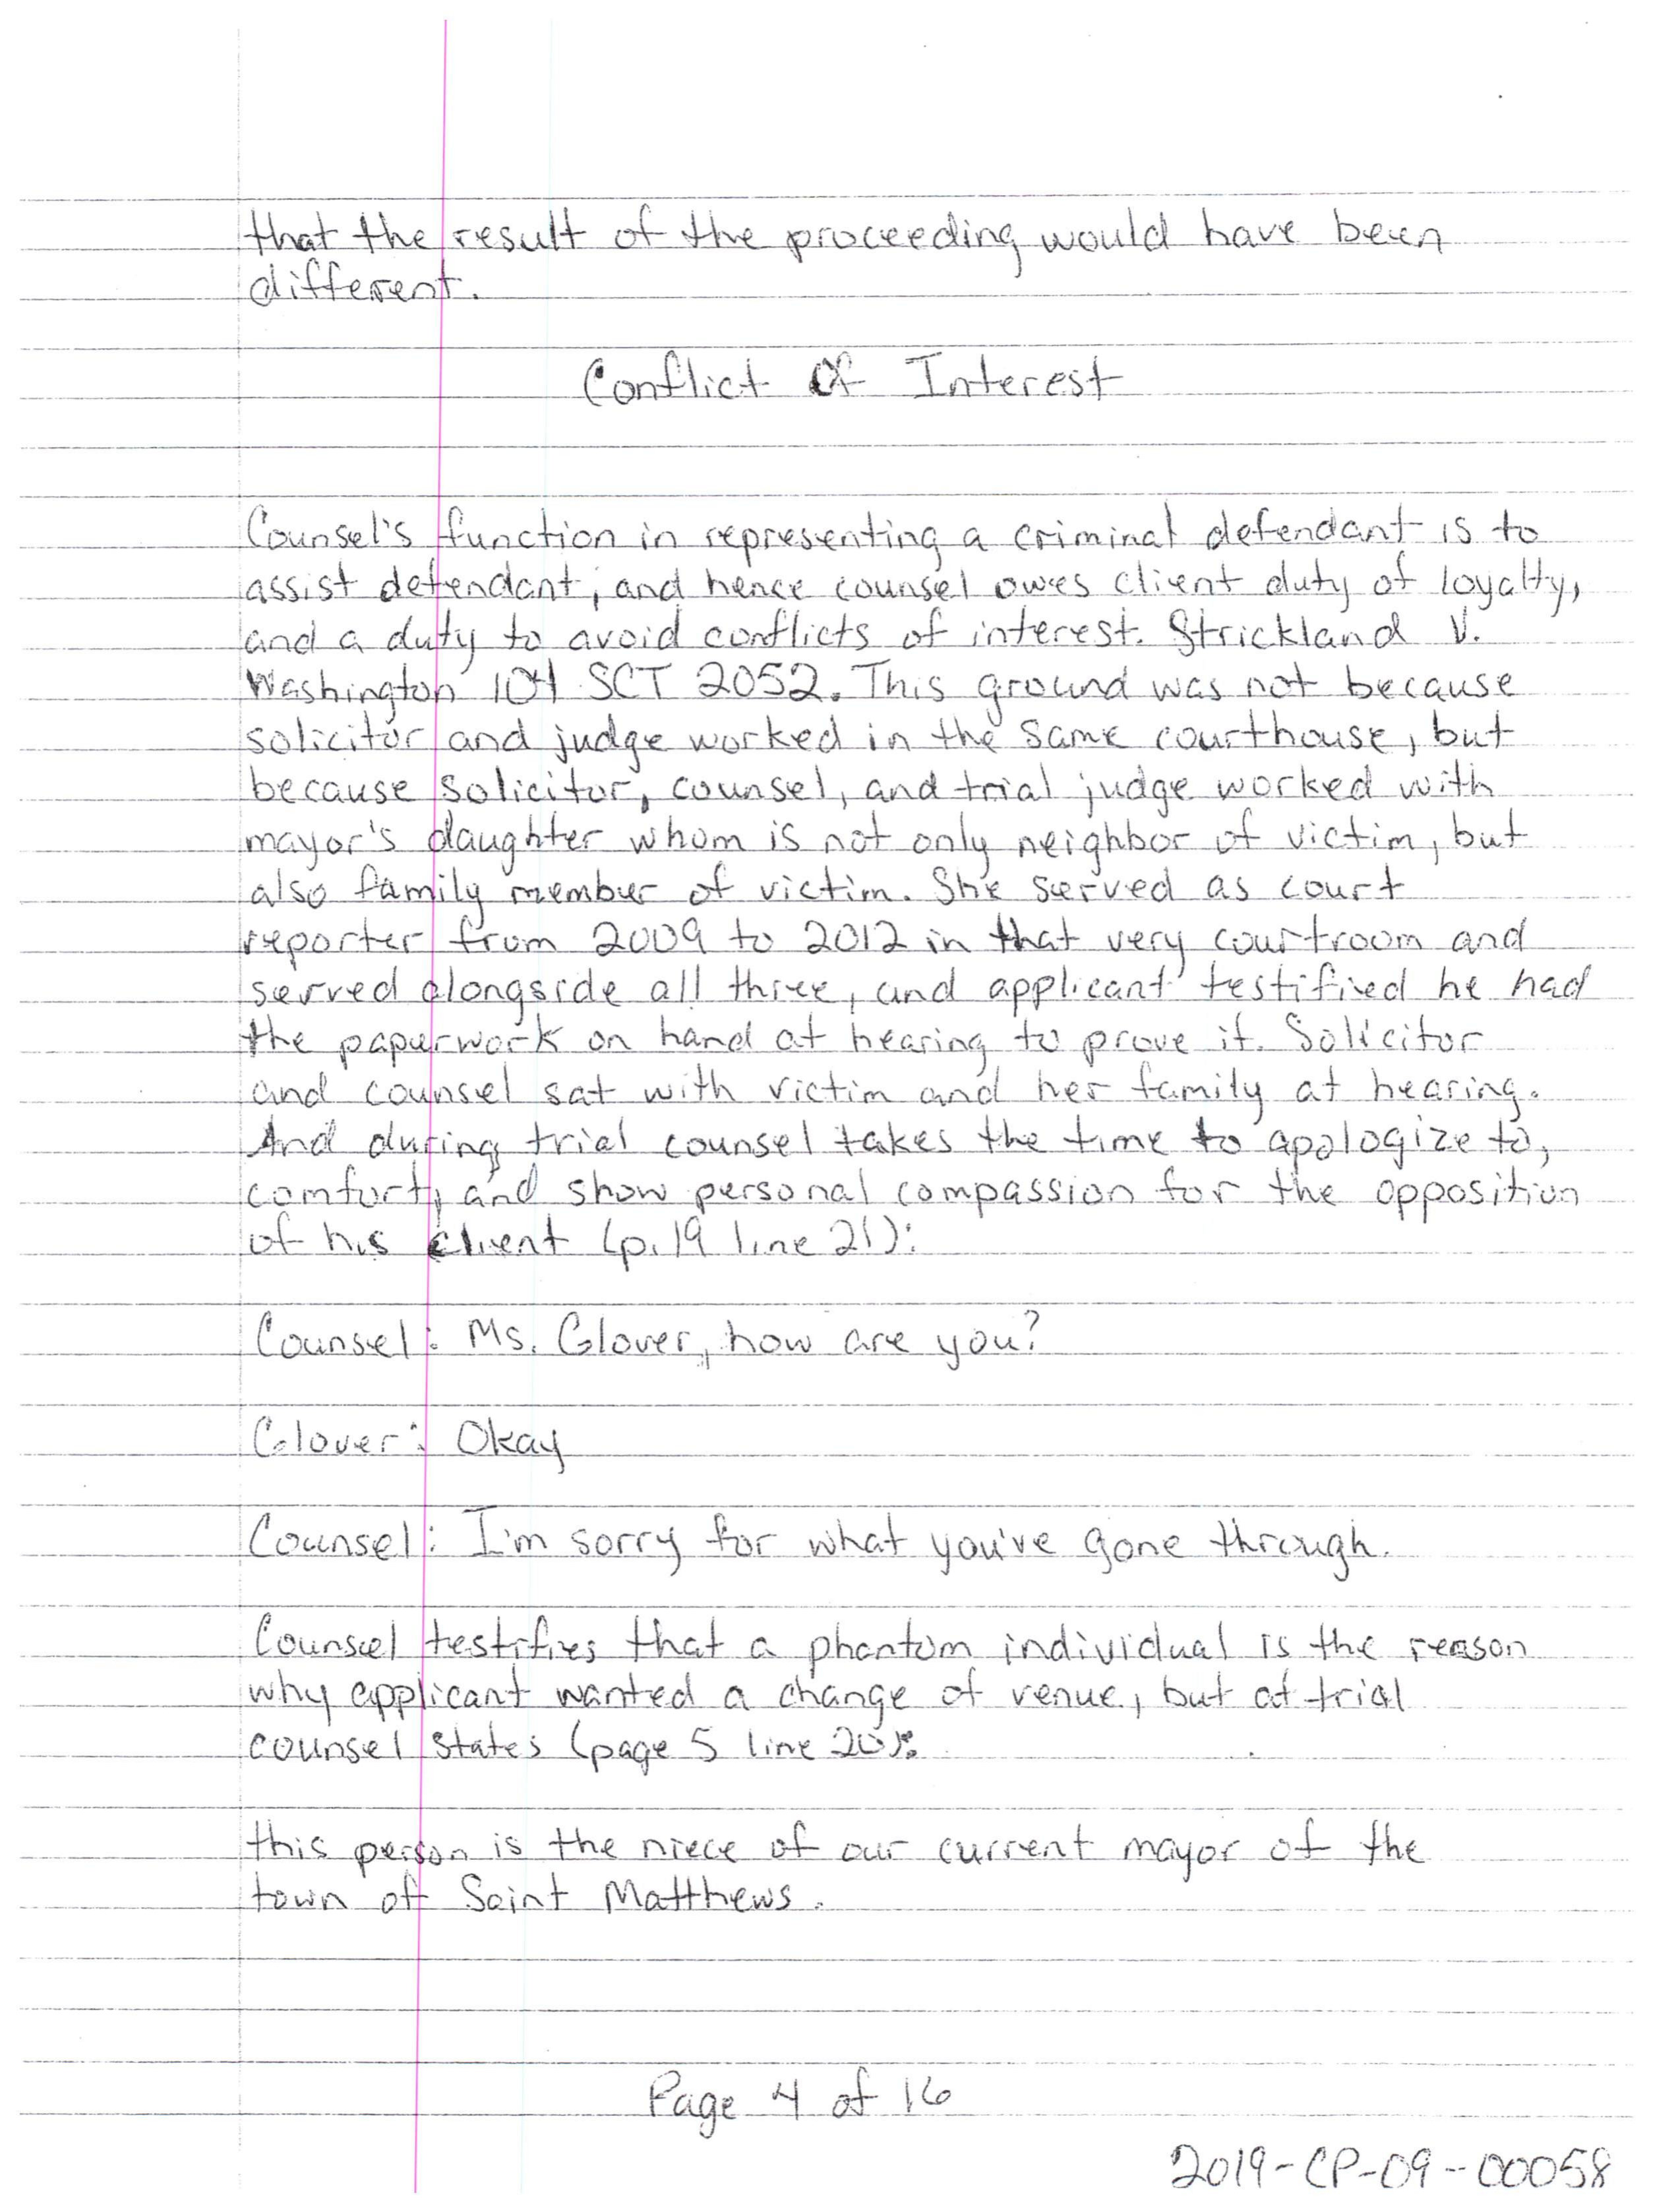 that the result of the proceeding would have been
different.
Conflict Of Interest
Counsel's function in representing a criminal defendant is to
assist defendant, and hence counsel owes client duty of loyalty,
and a duty to avoid conflicts of interest. Strickland V.
Washington 104 SCT 2052. This ground was not because
solicitor and judge worked in the same courthouse, but
because solicitor, counsel, and trial judge worked with
mayor's daughter whom is not only neighbor of victim, but
also family member of victim. She served as court
reporter from 2009 to 2012 in that very courtroom and
served alongside all three, and applicant testified he had
the paperwork on hand at hearing to prove it. Solicitor
and counsel sat with victim and her family at hearing.
And during trial counsel takes the time to apologize to,
comfort, and show personal compassion for the opposition
of his client (p. 19 line 21):
Counsel: Ms. Glover, how are you?
Glover: Okay
Counsel: I'm sorry for what you've gone through.
Counsel testifies that a phantom individual is the reason
why applicant wanted a change of venue, but at trial
counsel states (page 5 line 20):
this person is the niece of our current mayor of the
town of Saint Matthews.
Page 4 of 16
2019-CP-09-00058